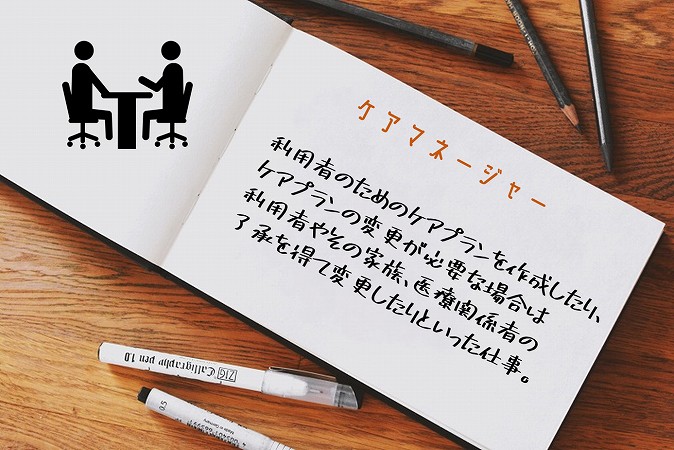 ケアマネージャー
利用者のためのケアプランを作成したり、
ケアプランの変更が必要な場合は
利用者やその家族、医療関係者の
了承を得て変更したりといった仕事。
ZIG Calligraphy pen 1.0
0.5
Made in Germany